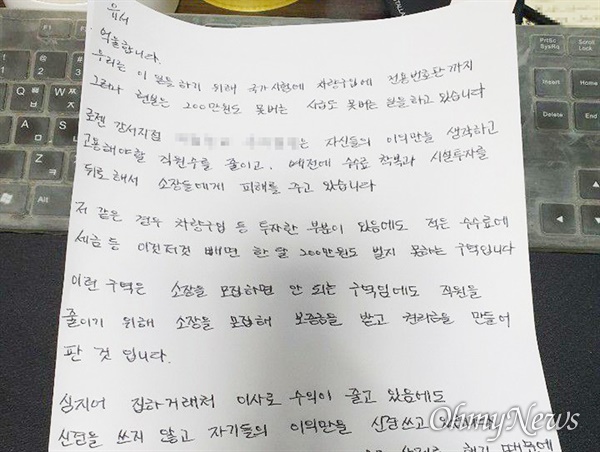 유서
억울합니다.
우리는 이 일을 하기 위해 국가시험에 차량구입에 전용번호판까지
그러나 현실은 200만원도 못버는 시급도 못버는 일을하고 있습니다
로젠 강서지점 는 자신들의 이익만을 생각하고
고용해야할 직원수를 줄이고, 예전에 수수료 착복과 시설투자를
뒤로해서 소장들에게 피해를 주고 있습니다
저 같은 경우 차량구입 등 투자한 부분이 있음에도 적은 수수료에
세금 등 이것저것 빼면 한 달 200만원도 벌지 못하는 구역입니다
이런 구역은 소장을 모집하면 안 되는 구역임에도 직원을
줄이기 위해 소장을 모집해 보증금을 받고 권리금을 만들어
판 것 입니다.
심지어 집하거래처 이사로 수익이 줄고 있음에도
신경을 쓰지 않고 자기들의 이익만을 신경쓰고
때문에
OhmyNews
PrtSc
SysRq
Scroll
Lock
Insert
Home
Delete
End